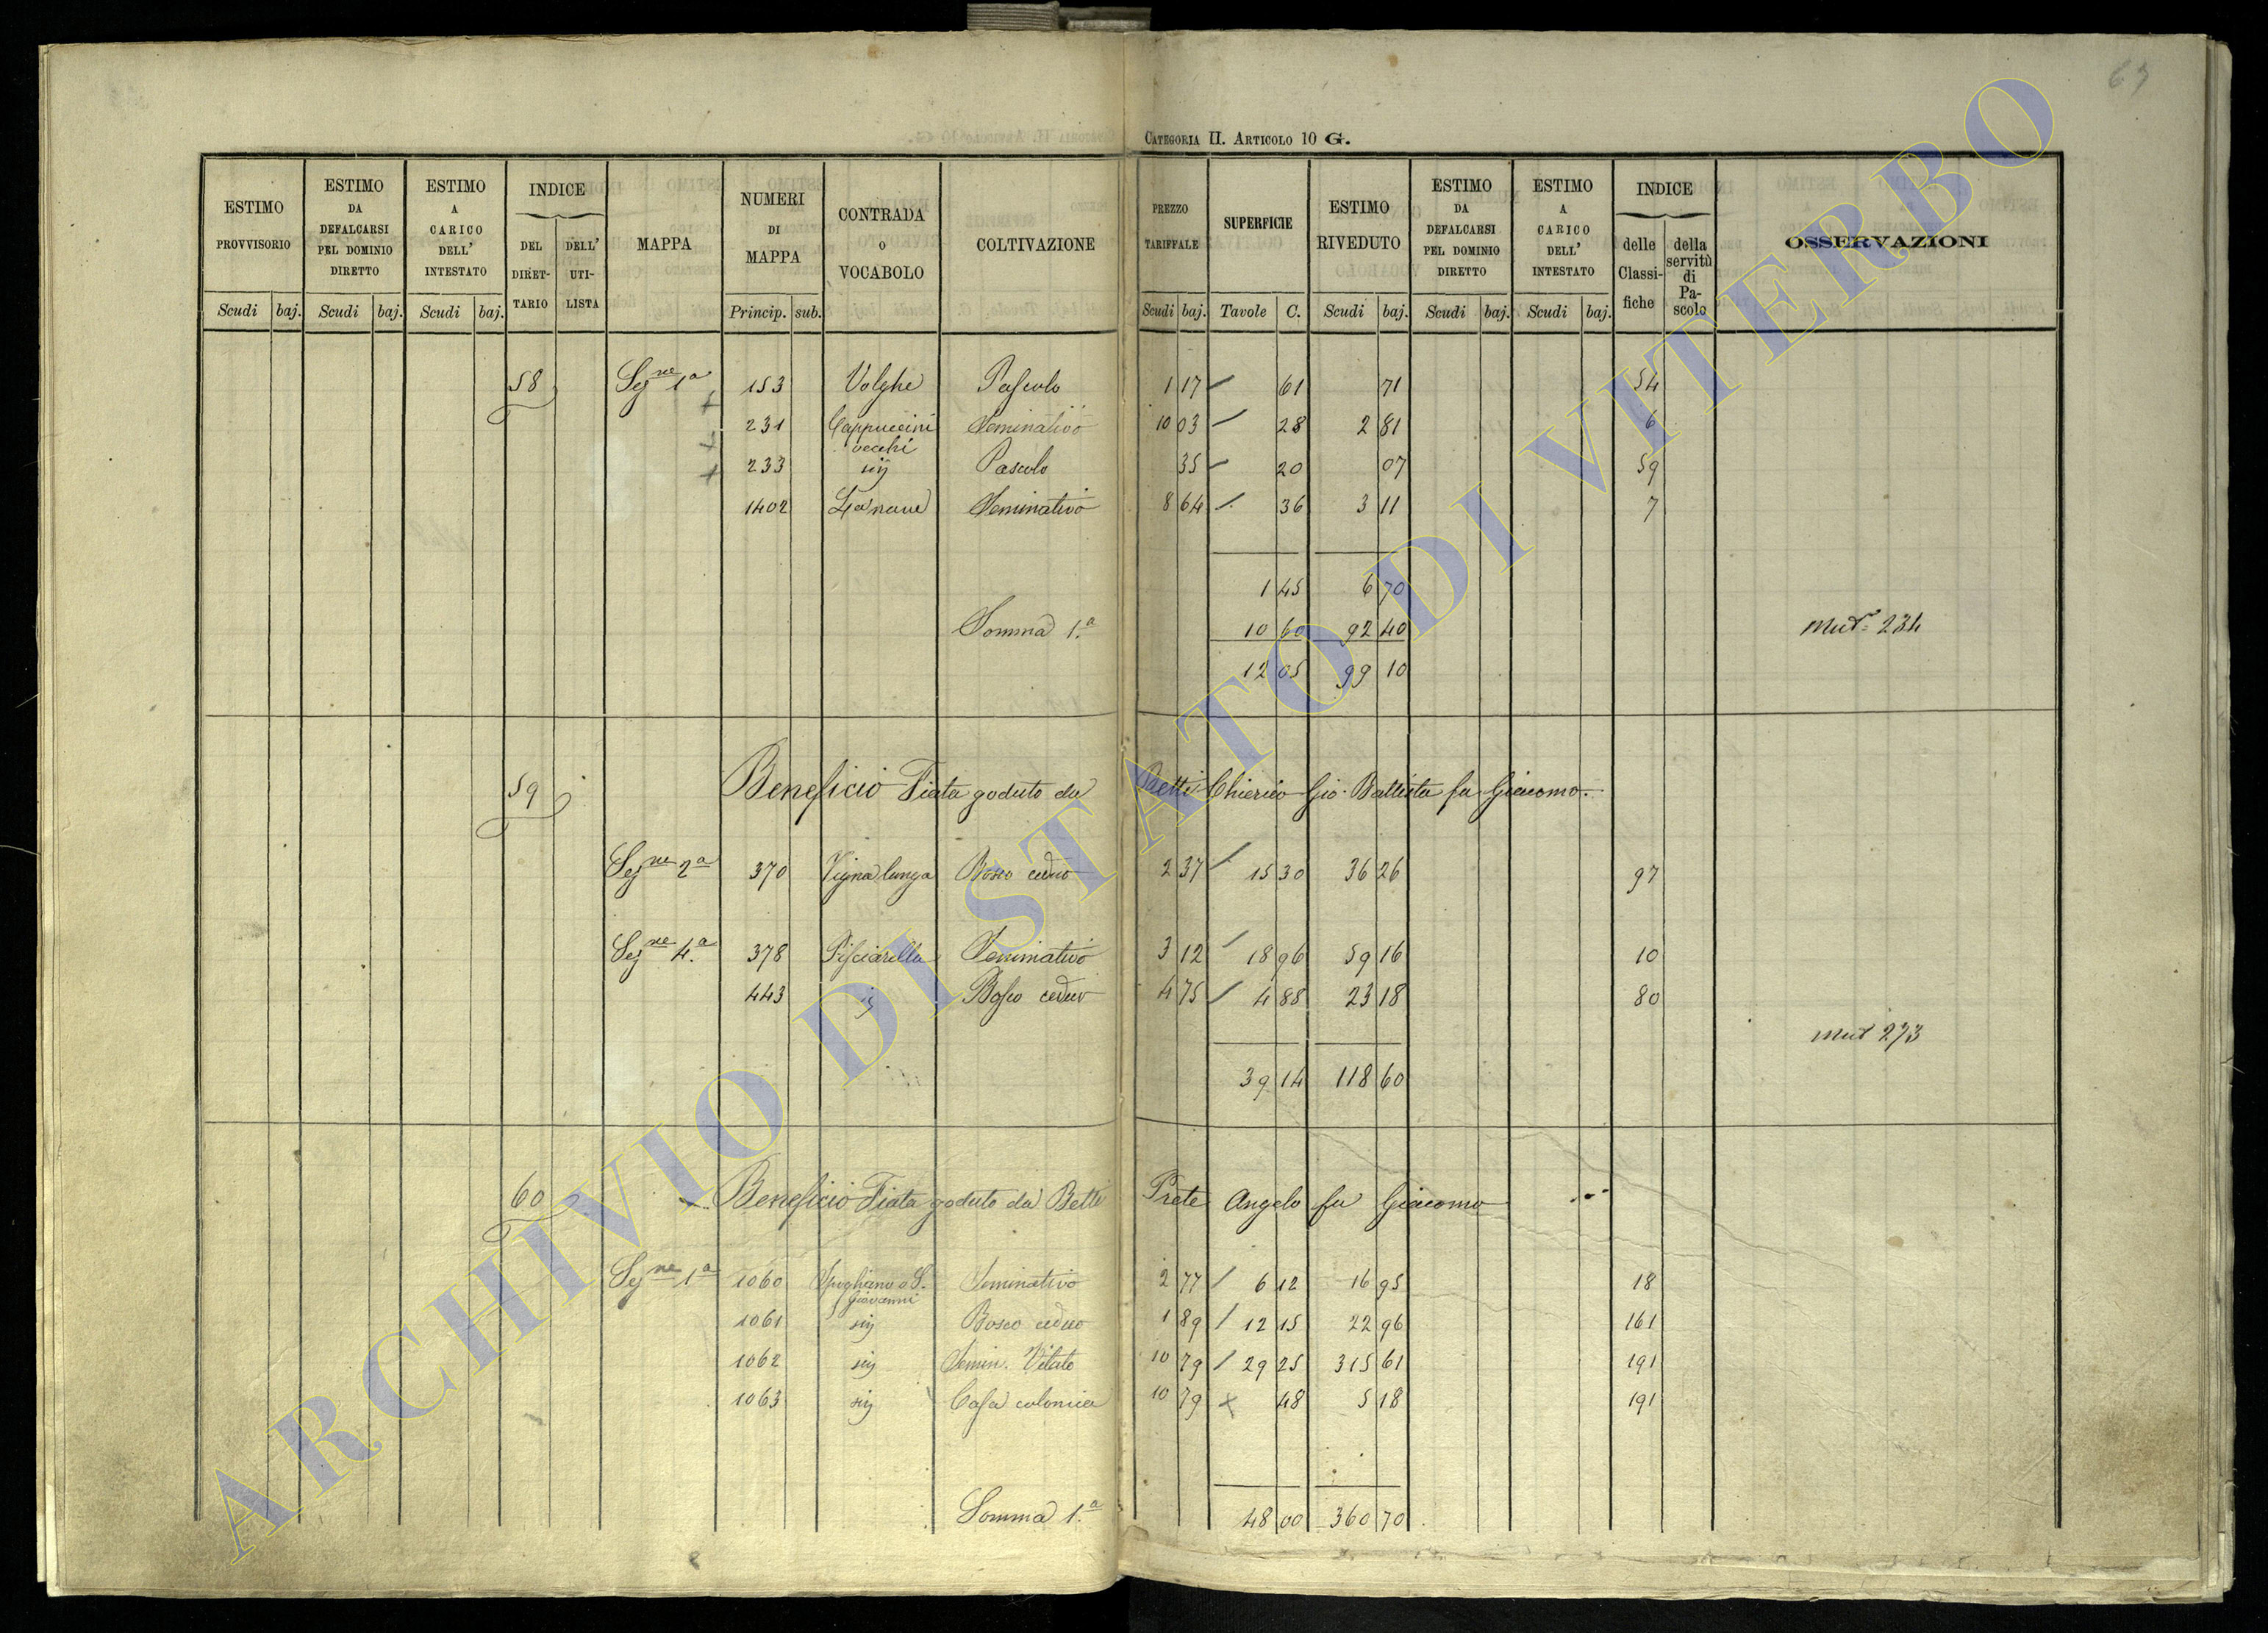 67
CATEGORIA II. ARTICOLO 10 G.
ESTIMO PROVVISORIO Scudi baj. ESTIMO DA DEFALCARSI PEL DOMINIO DIRETTO Scudi baj. ESTIMO A CARICO DELL' INTESTATO Scudi baj. INDICE DEL DIRETTARIO DELL' UTILISTA MAPPA NUMERI DI MAPPA Princip. sub. CONTRADA O VOCABOLO COLTIVAZIONE PREZZO TARIFFALE Scudi baj. SUPERFICIE Tavole C. ESTIMO RIVEDUTO Scudi baj. ESTIMO DA DEFALCARSI PEL DOMINIO DIRETTO Scudi baj. ESTIMO A CARICO DELL' INTESTATO Scudi baj. INDICE delle Classifiche della servitù di Pascolo OSSERVAZIONI
58 Segne 1a 153 Volghe Pascolo 1 17 61 71 54
231 Cappuccini vecchi Seminativo 10 03 28 2 81 6
233 Pascolo 35 20 07 59
1402 Seminativo 8 64 36 3 11 7
1 45 6 70
Somma 1.a 10 60 92 40 Mut. 234
12 05 99 10
59 Beneficio Fiata goduto da Betti Chierico Gio. Battista fu Giacomo.
Segne 2a 370 Vigna lunga Bosco ceduo 2 37 15 30 36 26 97
Segne 4.a 378 Pisciarella Seminativo 3 12 18 96 59 16 10
443 Bosco ceduo 4 75 4 88 23 18 80
Mut 273
39 14 118 60
60 Beneficio Fiata goduto da Betti Prete Angelo fu Giacomo
Segne 1a 1060 Spogliano o S. Giovanni Seminativo 2 77 6 12 16 95 18
1061 Bosco ceduo 1 89 12 15 22 96 161
1062 Semin. Vitato 10 79 29 25 315 61 191
1063 Casa colonica 10 79 48 5 18 191
Somma 1.a 48 00 360 70
ARCHIVIO DI STATO DI VITERBO